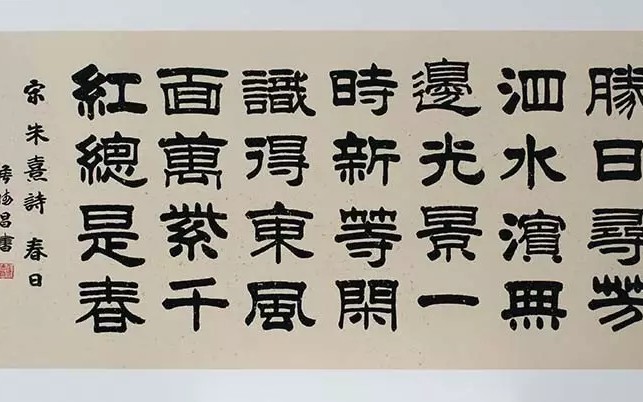 勝日尋芳
泗水濱無
邊光景一
時新等閑
識得東風
面萬紫千
紅總是春
宋朱熹詩 春日
昌書